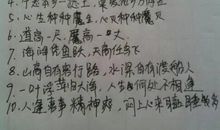 5、心生种种魔生,心灭种种魔灭
6、道高一尺,魔高一丈
7、海阔凭鱼跃,天高任鸟飞
8、山高自有客行路,水深自有渡船人
9、一叶浮萍归大海,人生何处不相逢
10、人逢喜事精神爽,闷上心来瞌睡多